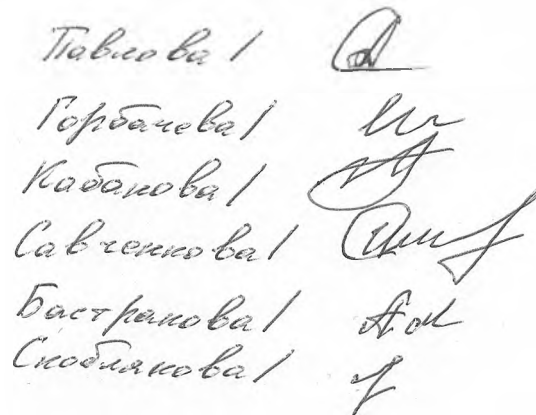 Павлова /
Горбачева /
Кабанова /
Савченкова /
Бастракова /
Скоблякова /